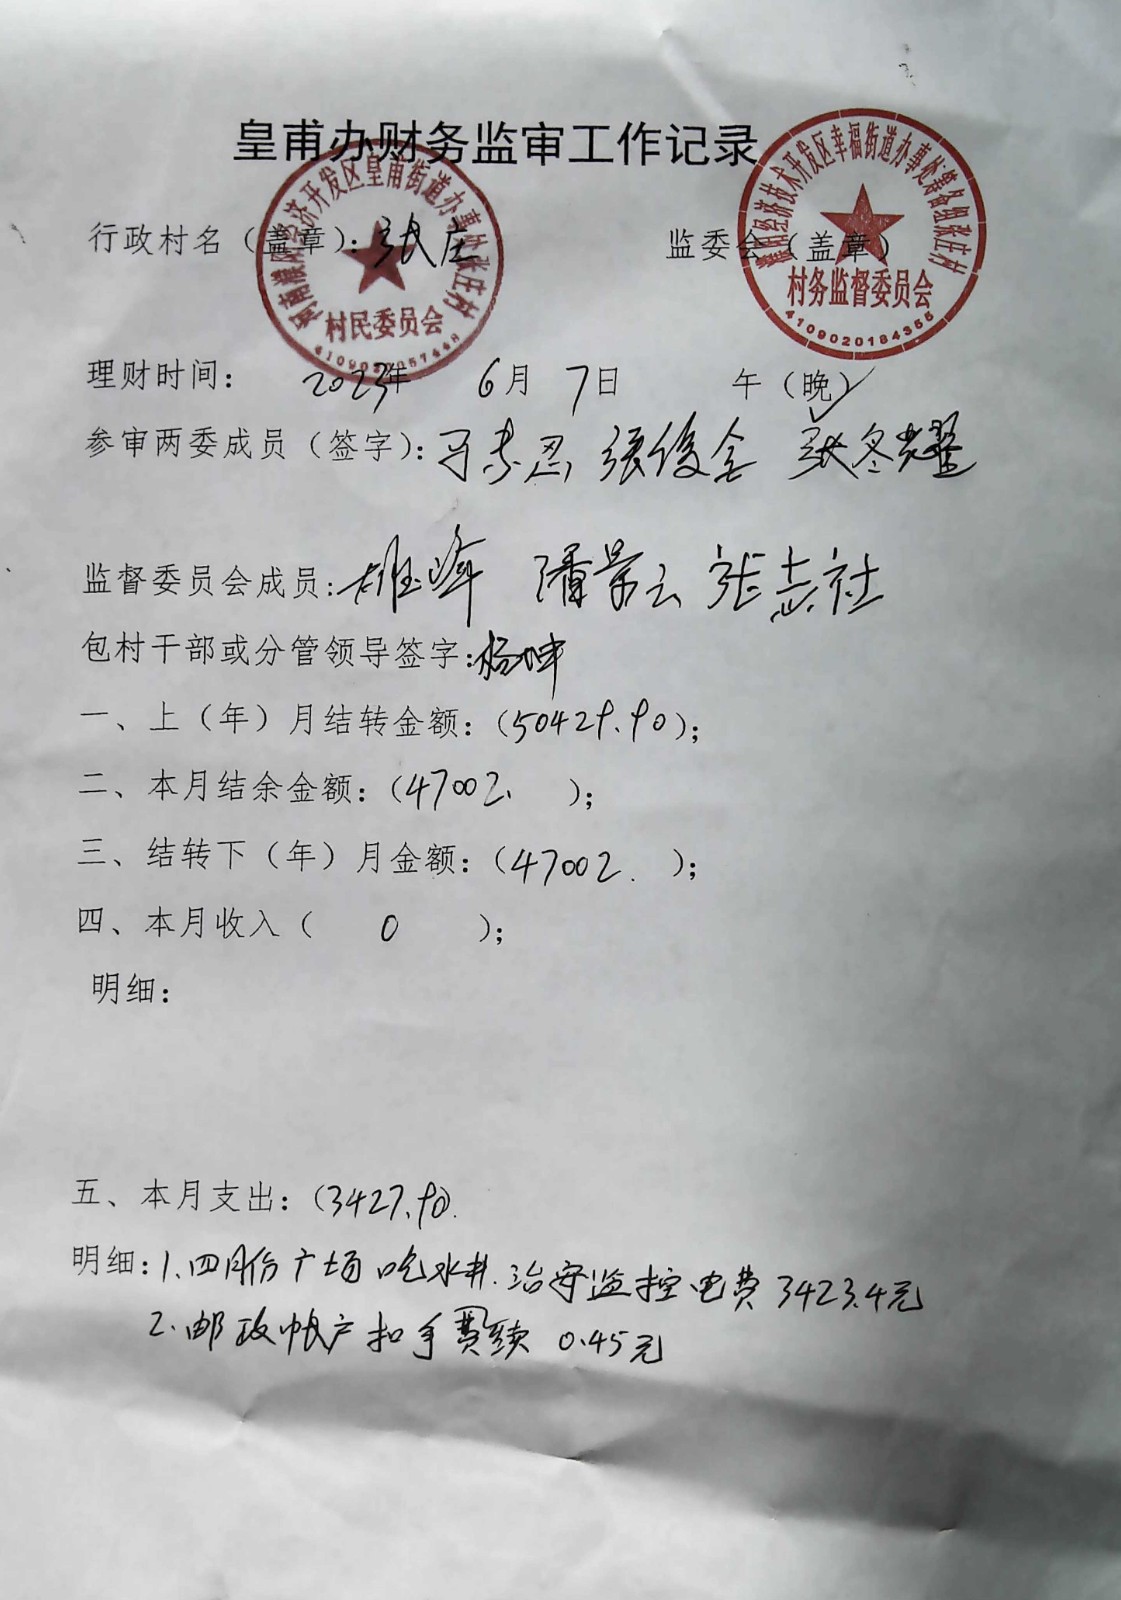 皇甫办财务监审工作记录
行政村名（盖章）：张庄 监委会（盖章）
村民委员会
濮阳经济技术开发区幸福街道办事处筹备组张庄村
村务监督委员会
4109020184355
理财时间： 2023年 6月 7日 午（晚）
参审两委成员（签字）：马素忍 张俊会 张冬耀
监督委员会成员： 雄峰 潘景云 张志社
包村干部或分管领导签字：杨坤
一、上（年）月结转金额：（50429.90）；
二、本月结余金额：（47002. ）；
三、结转下（年）月金额：（47002. ）；
四、本月收入（ 0 ）；
明细：
五、本月支出：（3427.90）.
明细：1.四月份广场吃水井.治安监控电费3423.4元
2.邮政帐户扣手费续 0.45元